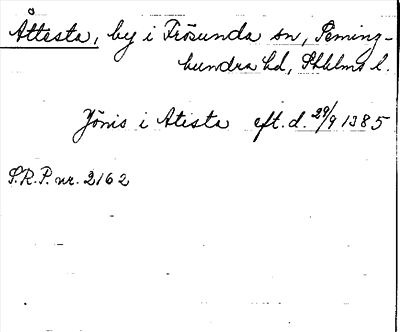 Åttesta, by i Frösunda sn, Seming-
hundra hd, Sthlms l.
Jönis i Atista eft. d. 29/9 1385
S.R.P. nr. 2162